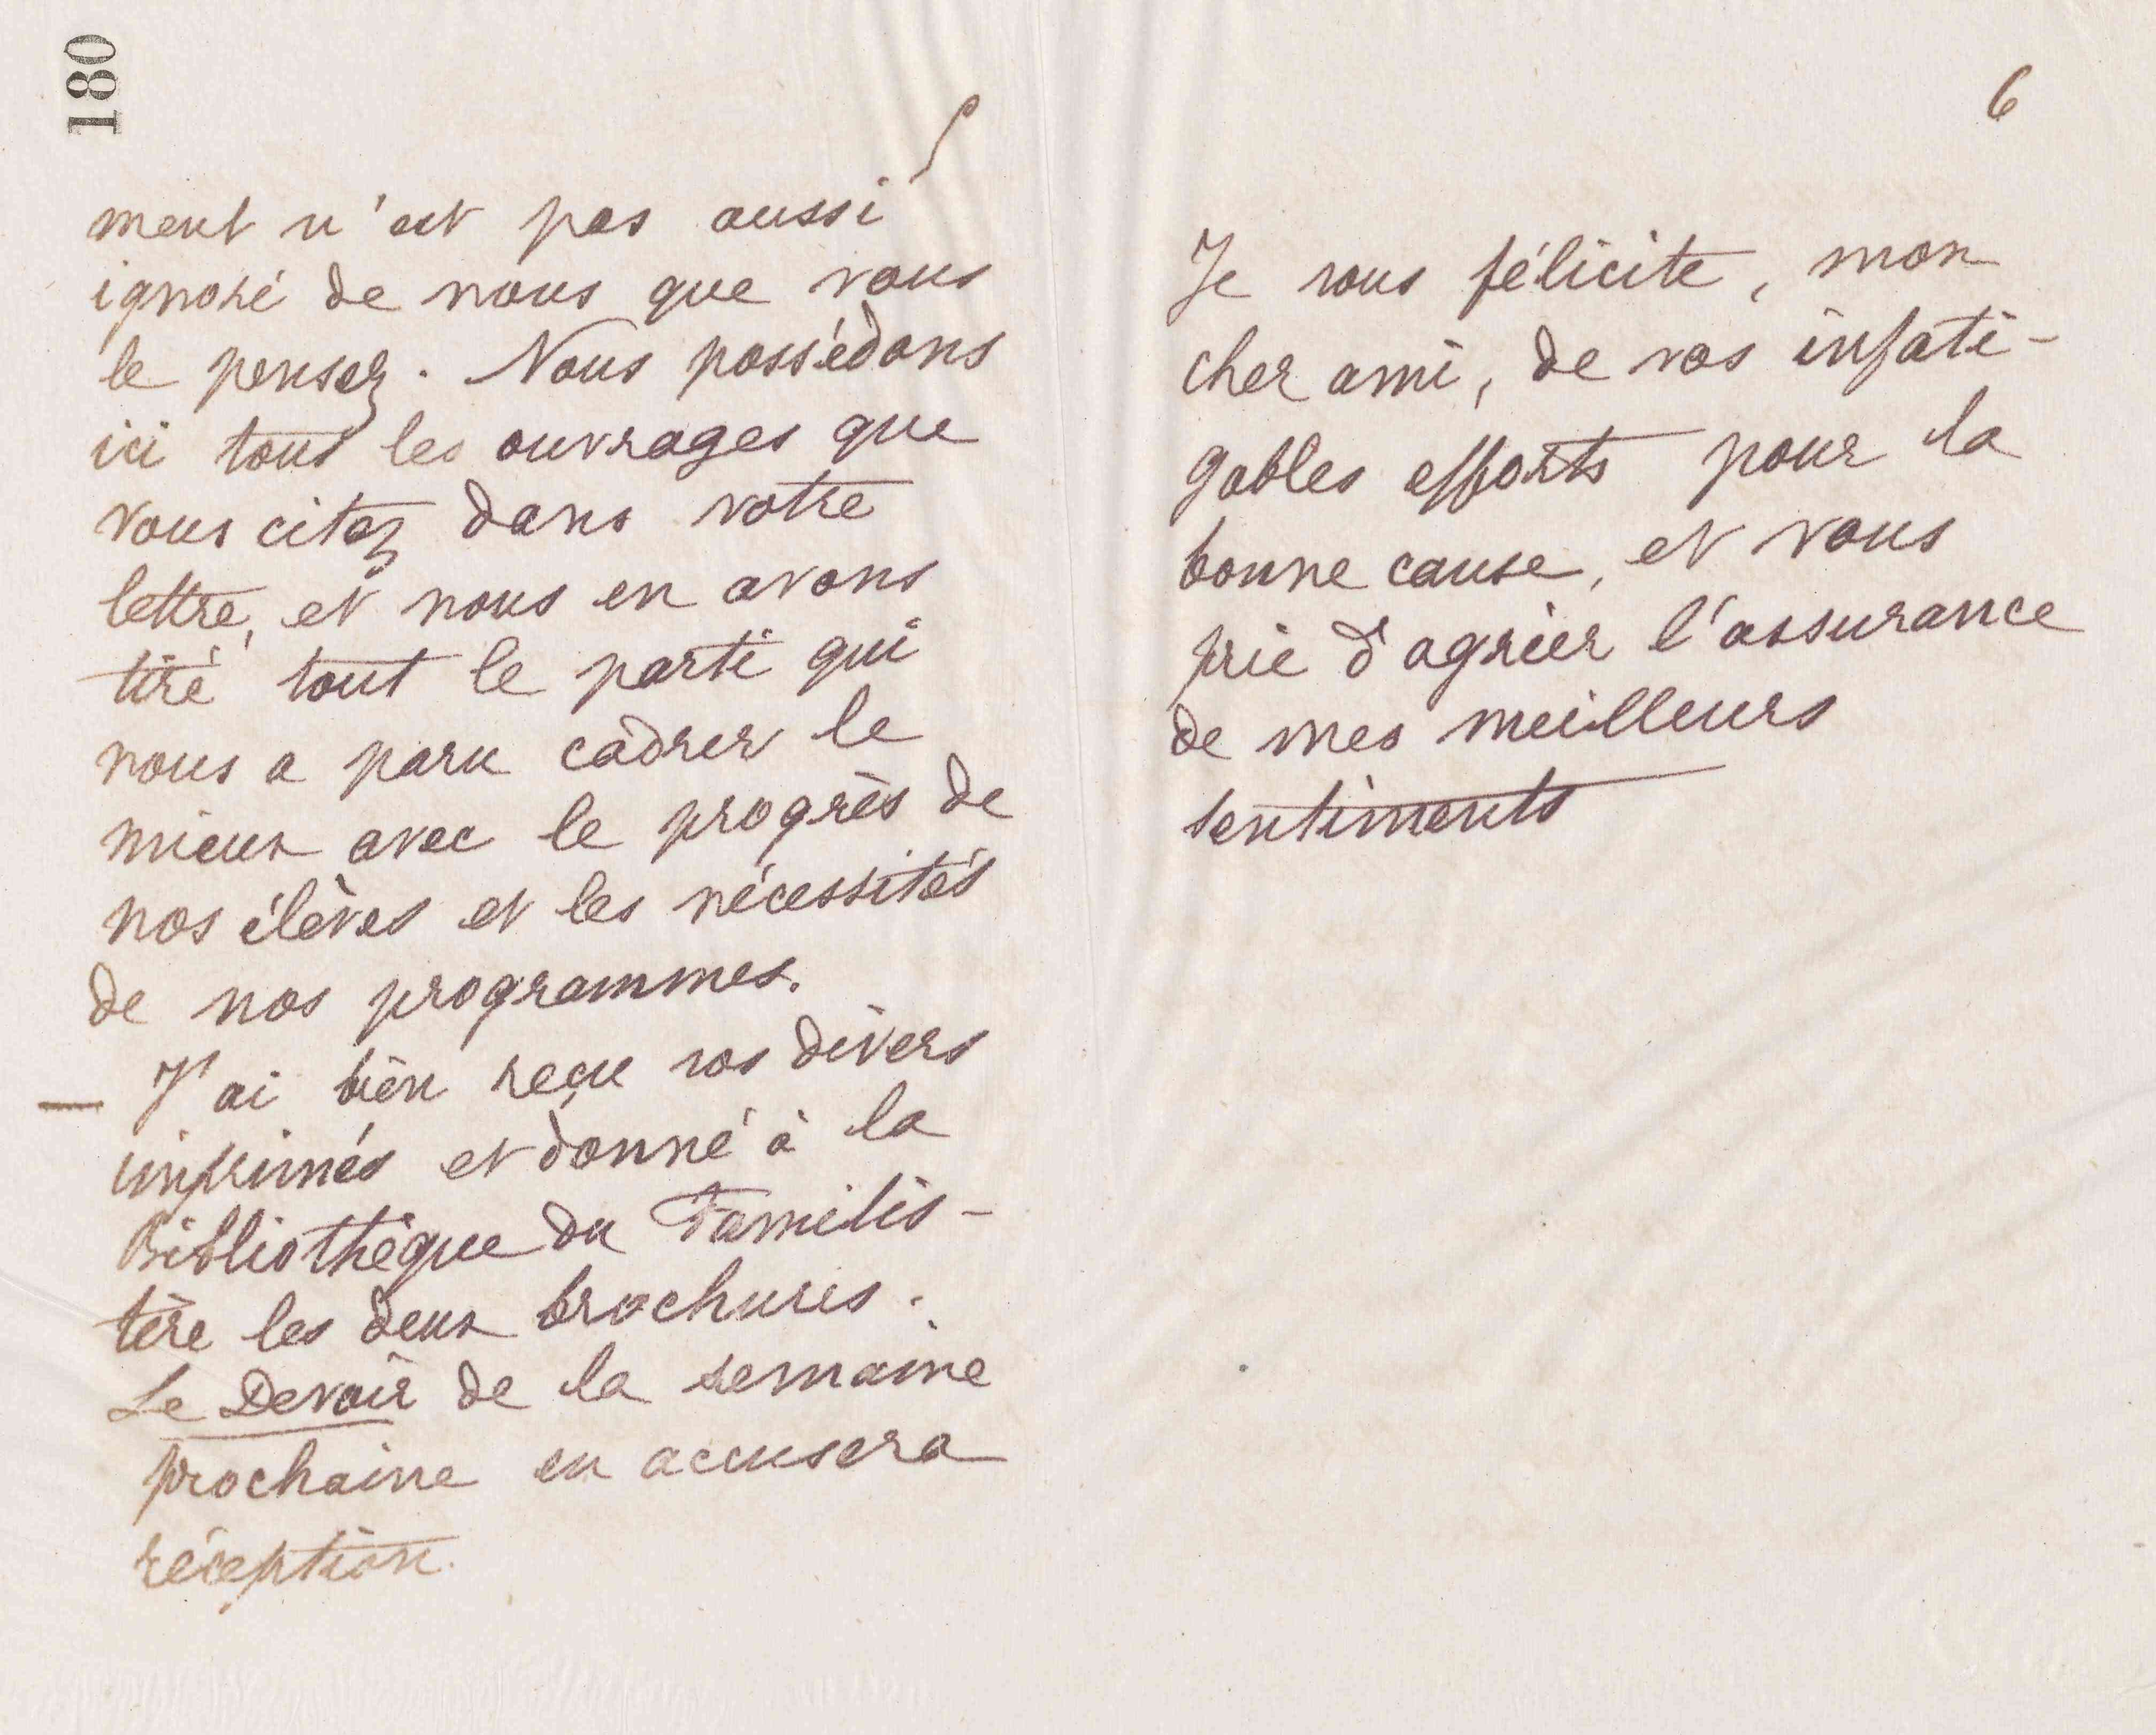 180
5
ment n'est pas aussi
ignoré de nous que vous
le pensez. Nous possédons
ici tous les ouvrages que
vous citez dans votre
lettre, et nous en avons
tiré tout le parti qui
nous a paru cadrer le
mieux avec le progrès de
nos élèves et les nécessités
de nos programmes.
— J'ai bien reçu vos divers
imprimés et donné à la
Bibliothèque du Familis-
tère les deux brochures.
Le Devoir de la semaine
prochaine en accusera
réception.
6
Je vous félicite, mon
cher ami, de vos infati-
gables efforts pour la
bonne cause, et vous
prie d'agréer l'assurance
de mes meilleurs
sentiments